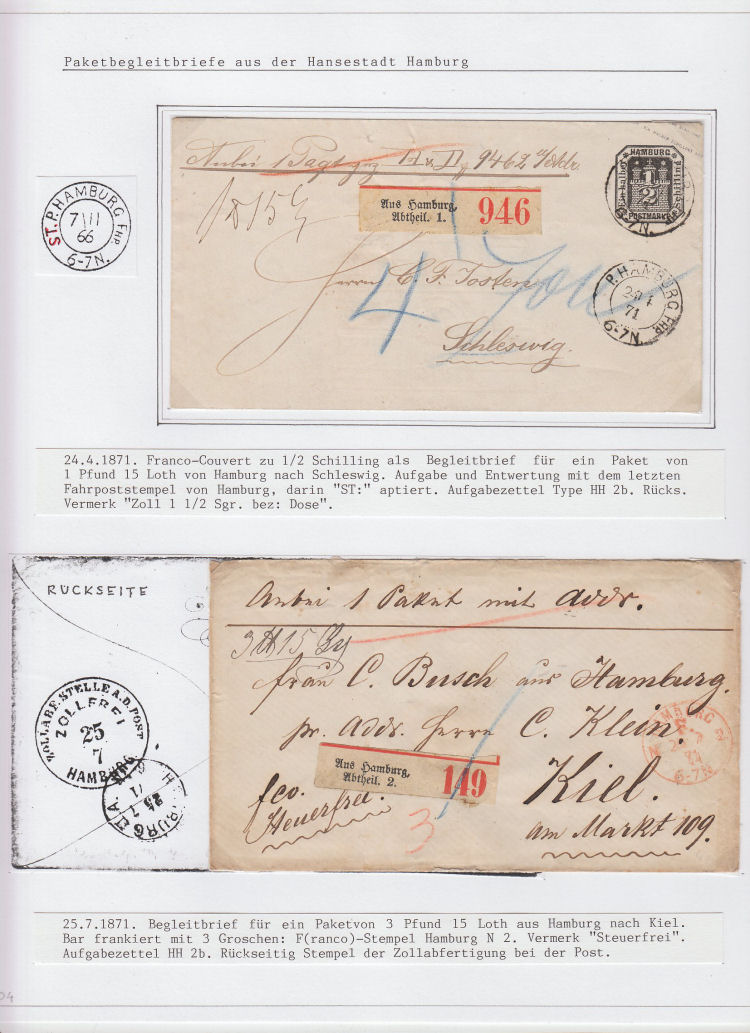 Paketbegleitbriefe aus der Hansestadt Hamburg
ST. P. HAMBURG FHP.
7 II
66
6-7N.
Anbei 1
HAMBURG
Ein halber
1/2
Schilling
POSTMARKE
6-7N.
Aus Hamburg,
Abtheil. 1.
946
Herrn C. F. Tosten
4
Schleswig.
P. HAMBURG FHP.
71
6-7N.
24.4.1871. Franco-Couvert zu 1/2 Schilling als Begleitbrief für ein Paket von
1 Pfund 15 Loth von Hamburg nach Schleswig. Aufgabe und Entwertung mit dem letzten
Fahrpoststempel von Hamburg, darin "ST:" aptiert. Aufgabezettel Type HH 2b. Rücks.
Vermerk "Zoll 1 1/2 Sgr. bez: Dose".
RÜCKSEITE
ZOLLABF. STELLE A.D. POST
ZOLLFREI
25
7
HAMBURG
HAMBURG
Anbei 1 Paket mit Addr.
3 15
Frau C. Busch aus Hamburg.
pr. Addr. Herrn C. Klein.
Aus Hamburg,
Abtheil. 2.
149
fco.
Steuerfrei.
Kiel.
am Markt 109.
3
HAMBURG
71
6-7N
25.7.1871. Begleitbrief für ein Paketvon 3 Pfund 15 Loth aus Hamburg nach Kiel.
Bar frankiert mit 3 Groschen: F(ranco)-Stempel Hamburg N 2. Vermerk "Steuerfrei".
Aufgabezettel HH 2b. Rückseitig Stempel der Zollabfertigung bei der Post.